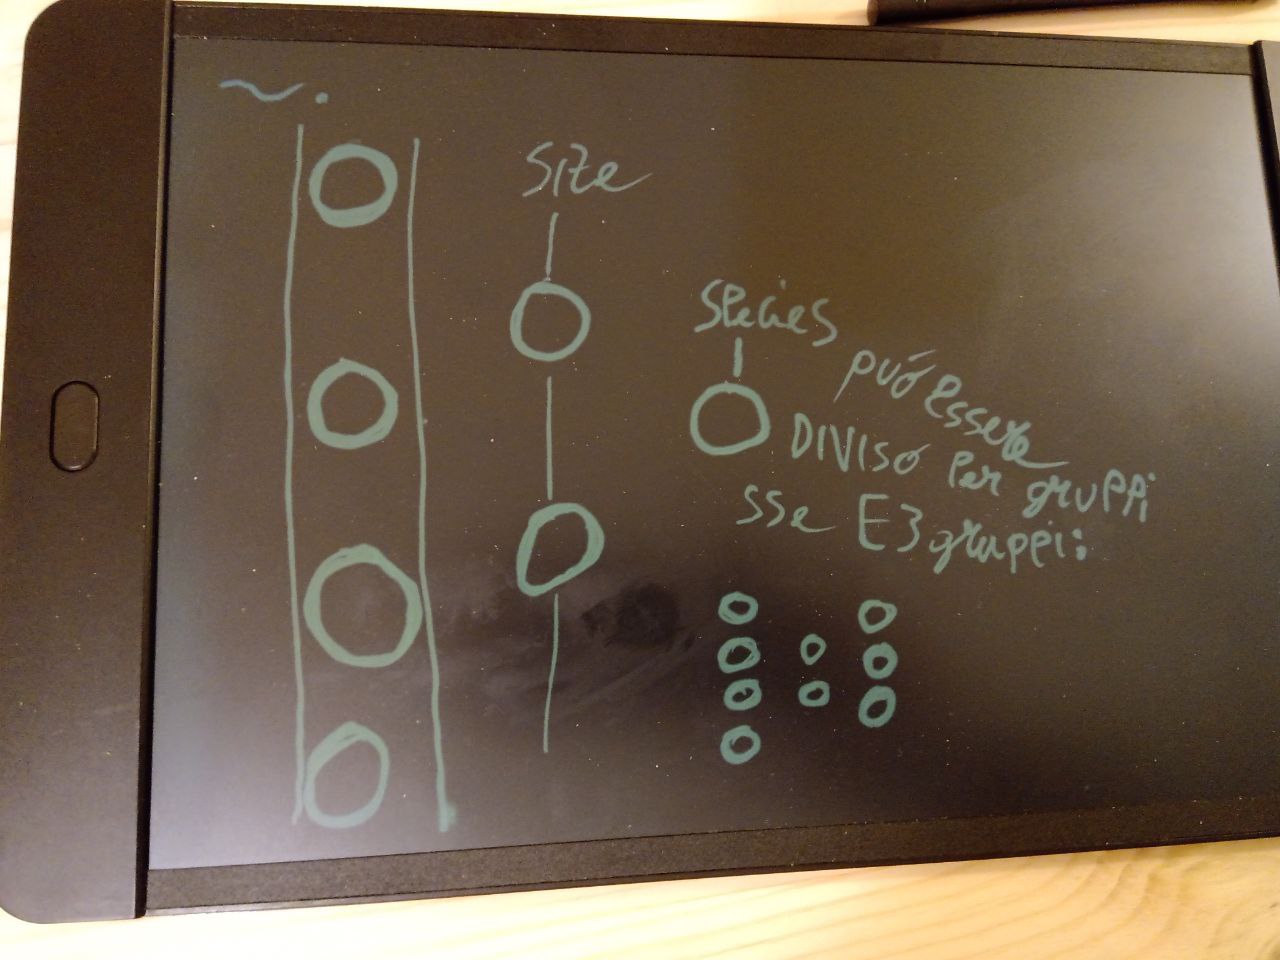 Size
Species
può essere
DIVISO per gruppi
sse E 3 gruppi: